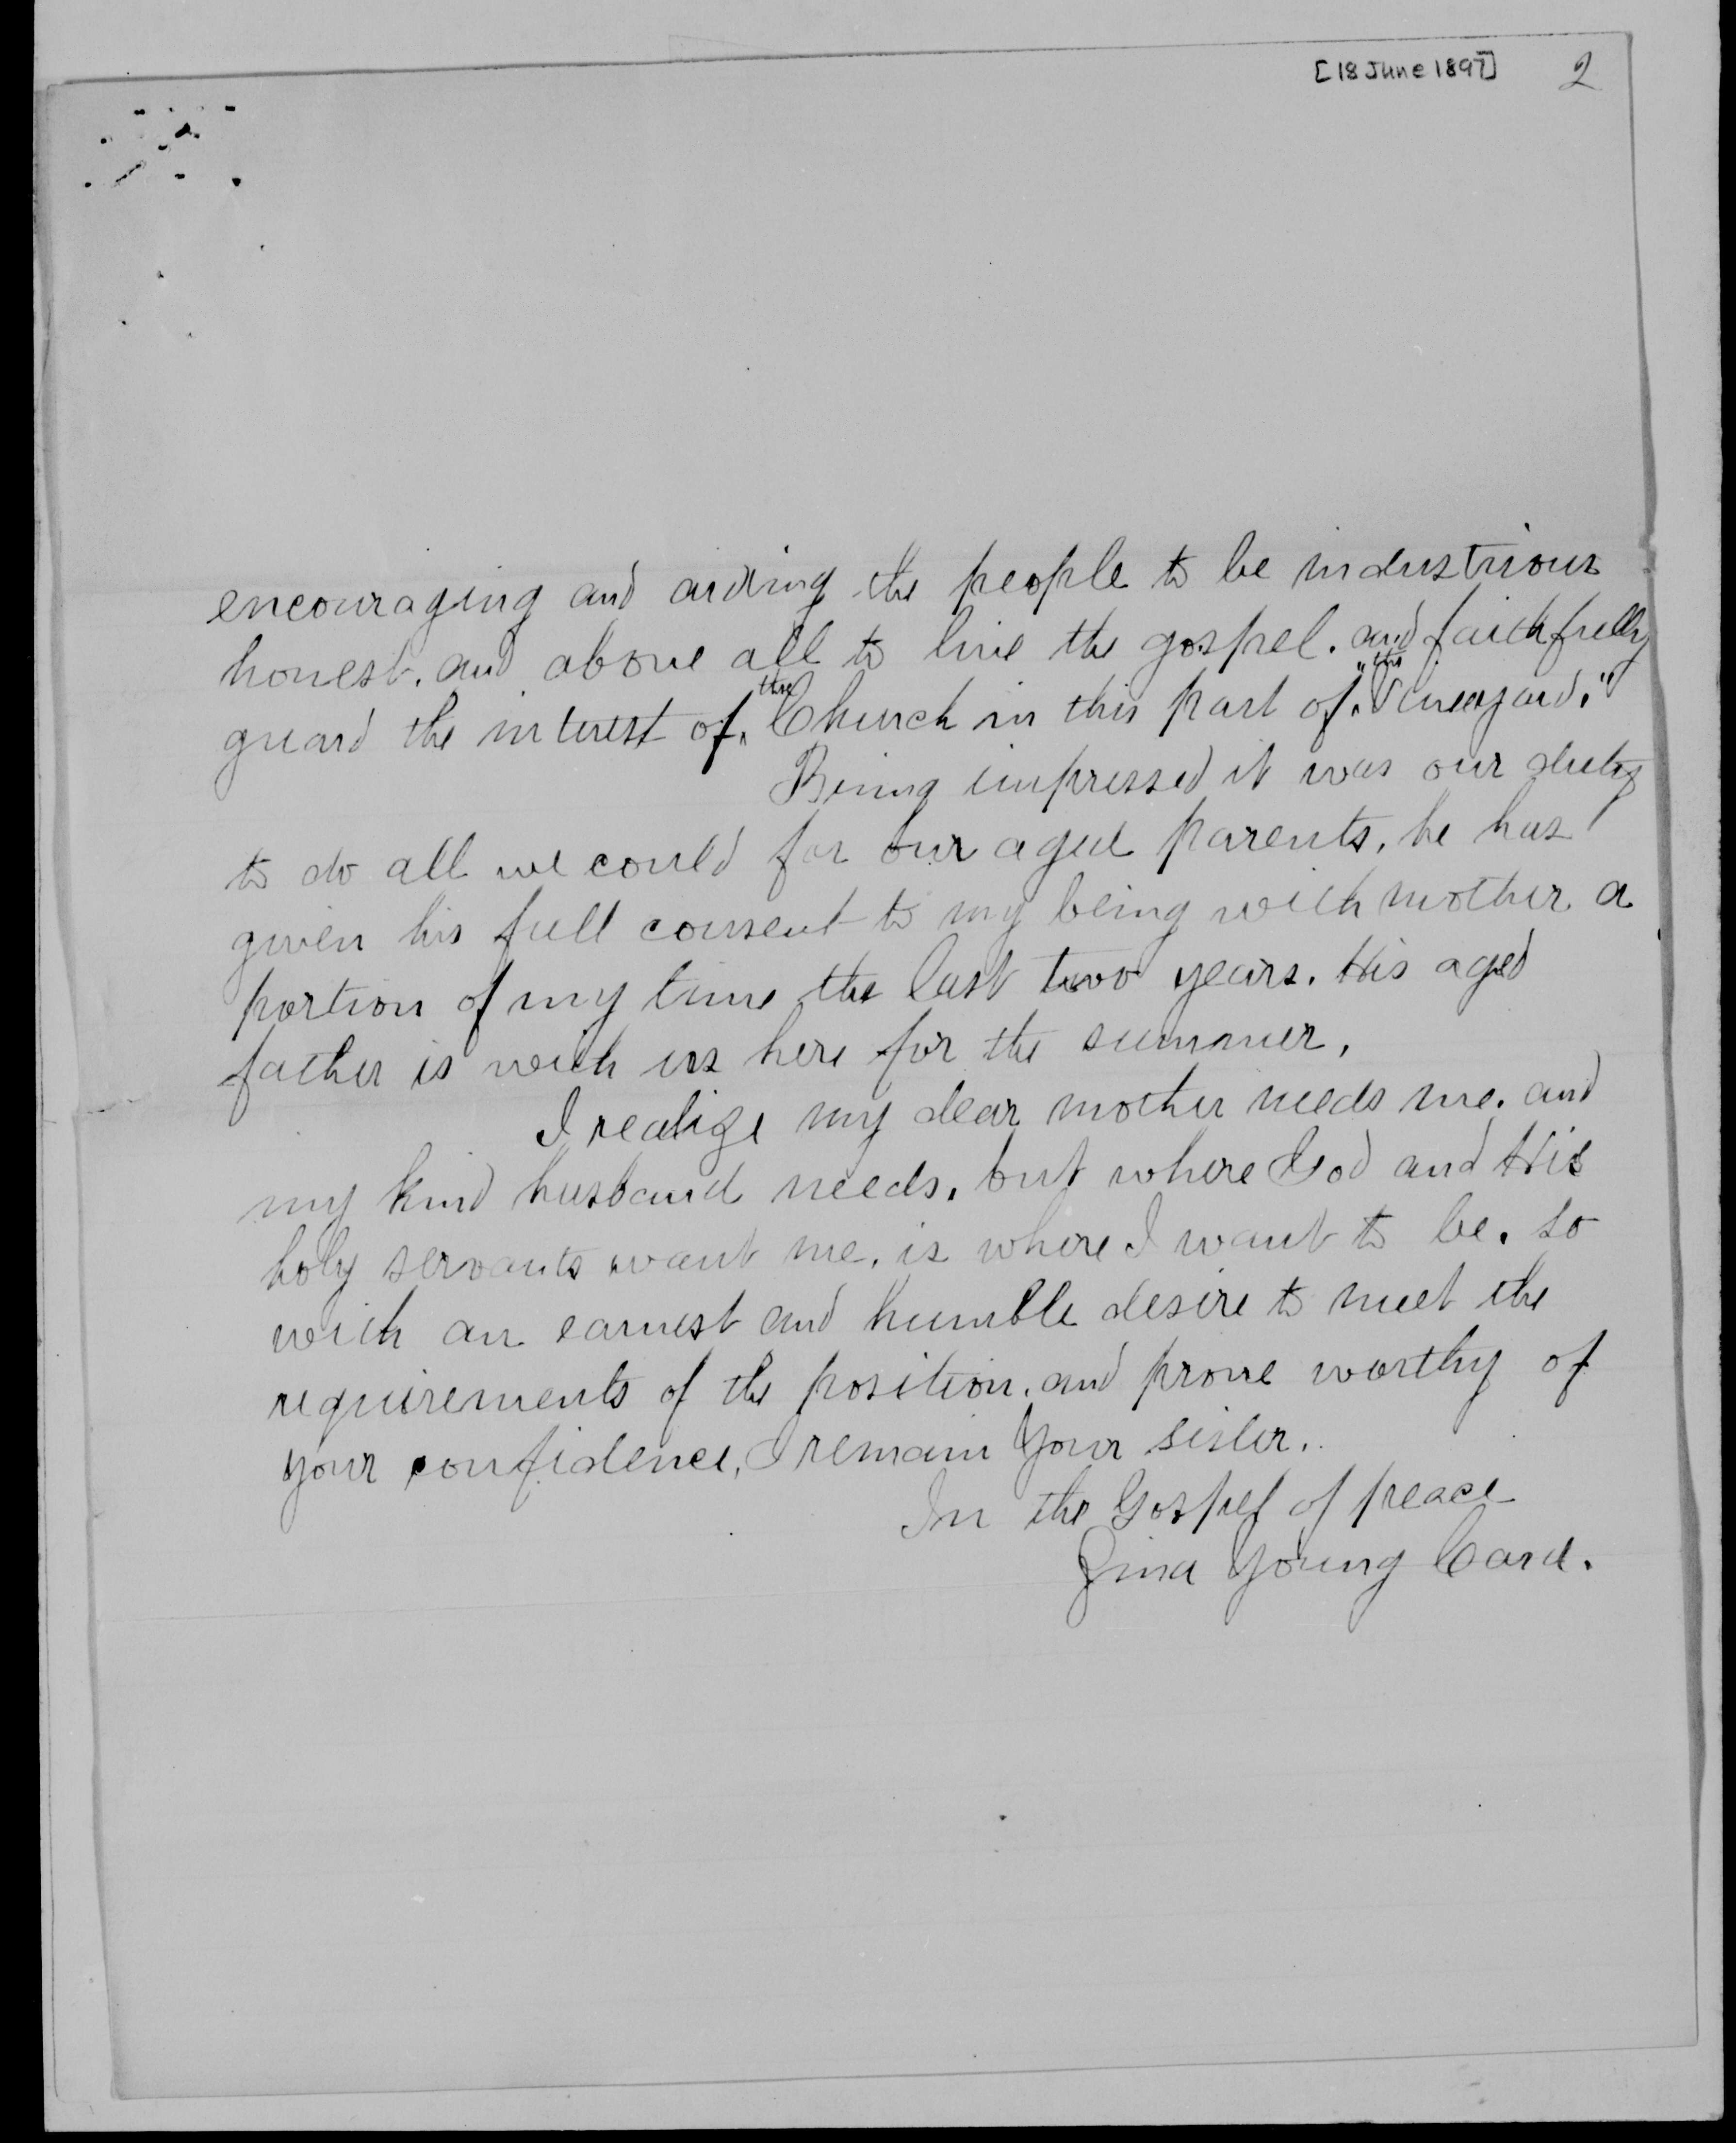 [18 June 1897] 2
encouraging and aiding the people to be industrious
honest. and above all to live the gospel. and faithfully
guard the interest of ‸the Church in this part of ‸"the Vineyard."
Being impressed it was our duty
to do all we could for our aged parents, he has
given his full consent to my being with mother a
portion of my time the last two years. His aged
father is with us here for the summer,
I realize my dear mother needs me. and
my kind husband needs, but where God and His
holy servants want me, is where I want to be. so
with an earnest and humble desire to meet the
requirements of the position, and prove worthy of
your confidence, I remain Your sister.
In the Gospel of peace
Zina Young Card.